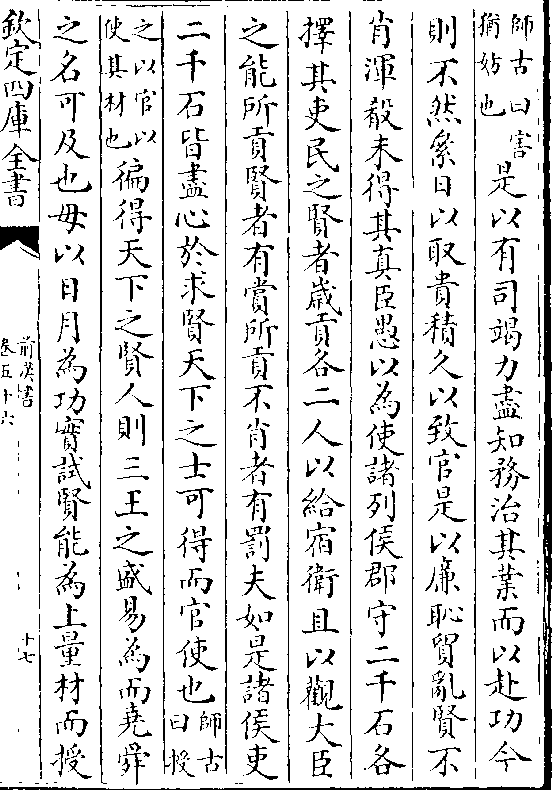 師古曰害
猶妨也
是以有司竭力盡知務治其業而以赴功今
則不然絫日以取貴積久以致官是以廉恥貿亂賢不
肖渾殽未得其真臣愚以為使諸列侯郡守二千石各
擇其吏民之賢者歲貢各二人以給宿衛且以觀大臣
之能所貢賢者有賞所貢不肖者有罰夫如是諸侯吏
二千石皆盡心於求賢天下之士可得而官使也師古
曰授
之以官以
使其材也
徧得天下之賢人則三王之盛易為而堯舜
之名可及也毋以日月為功實試賢能為上量材而授
欽定四庫全書
前漢書
卷五十六
十七